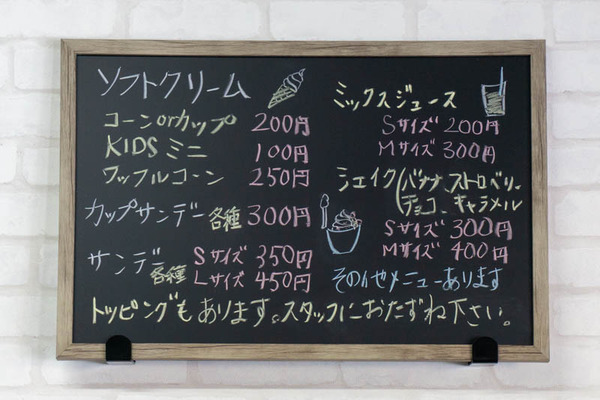 ソフトクリーム
コーンorカップ 200円
KIDSミニ 100円
ワッフルコーン 250円
カップサンデー各種 300円
サンデー各種 Sサイズ 350円
Lサイズ 450円
ミックスジュース
Sサイズ 200円
Mサイズ 300円
シェイク(バナナ、ストロベリー、
チョコ、キャラメル
Sサイズ 300円
Mサイズ 400円
その他メニューあります
トッピングもあります。スタッフにおたずね下さい。